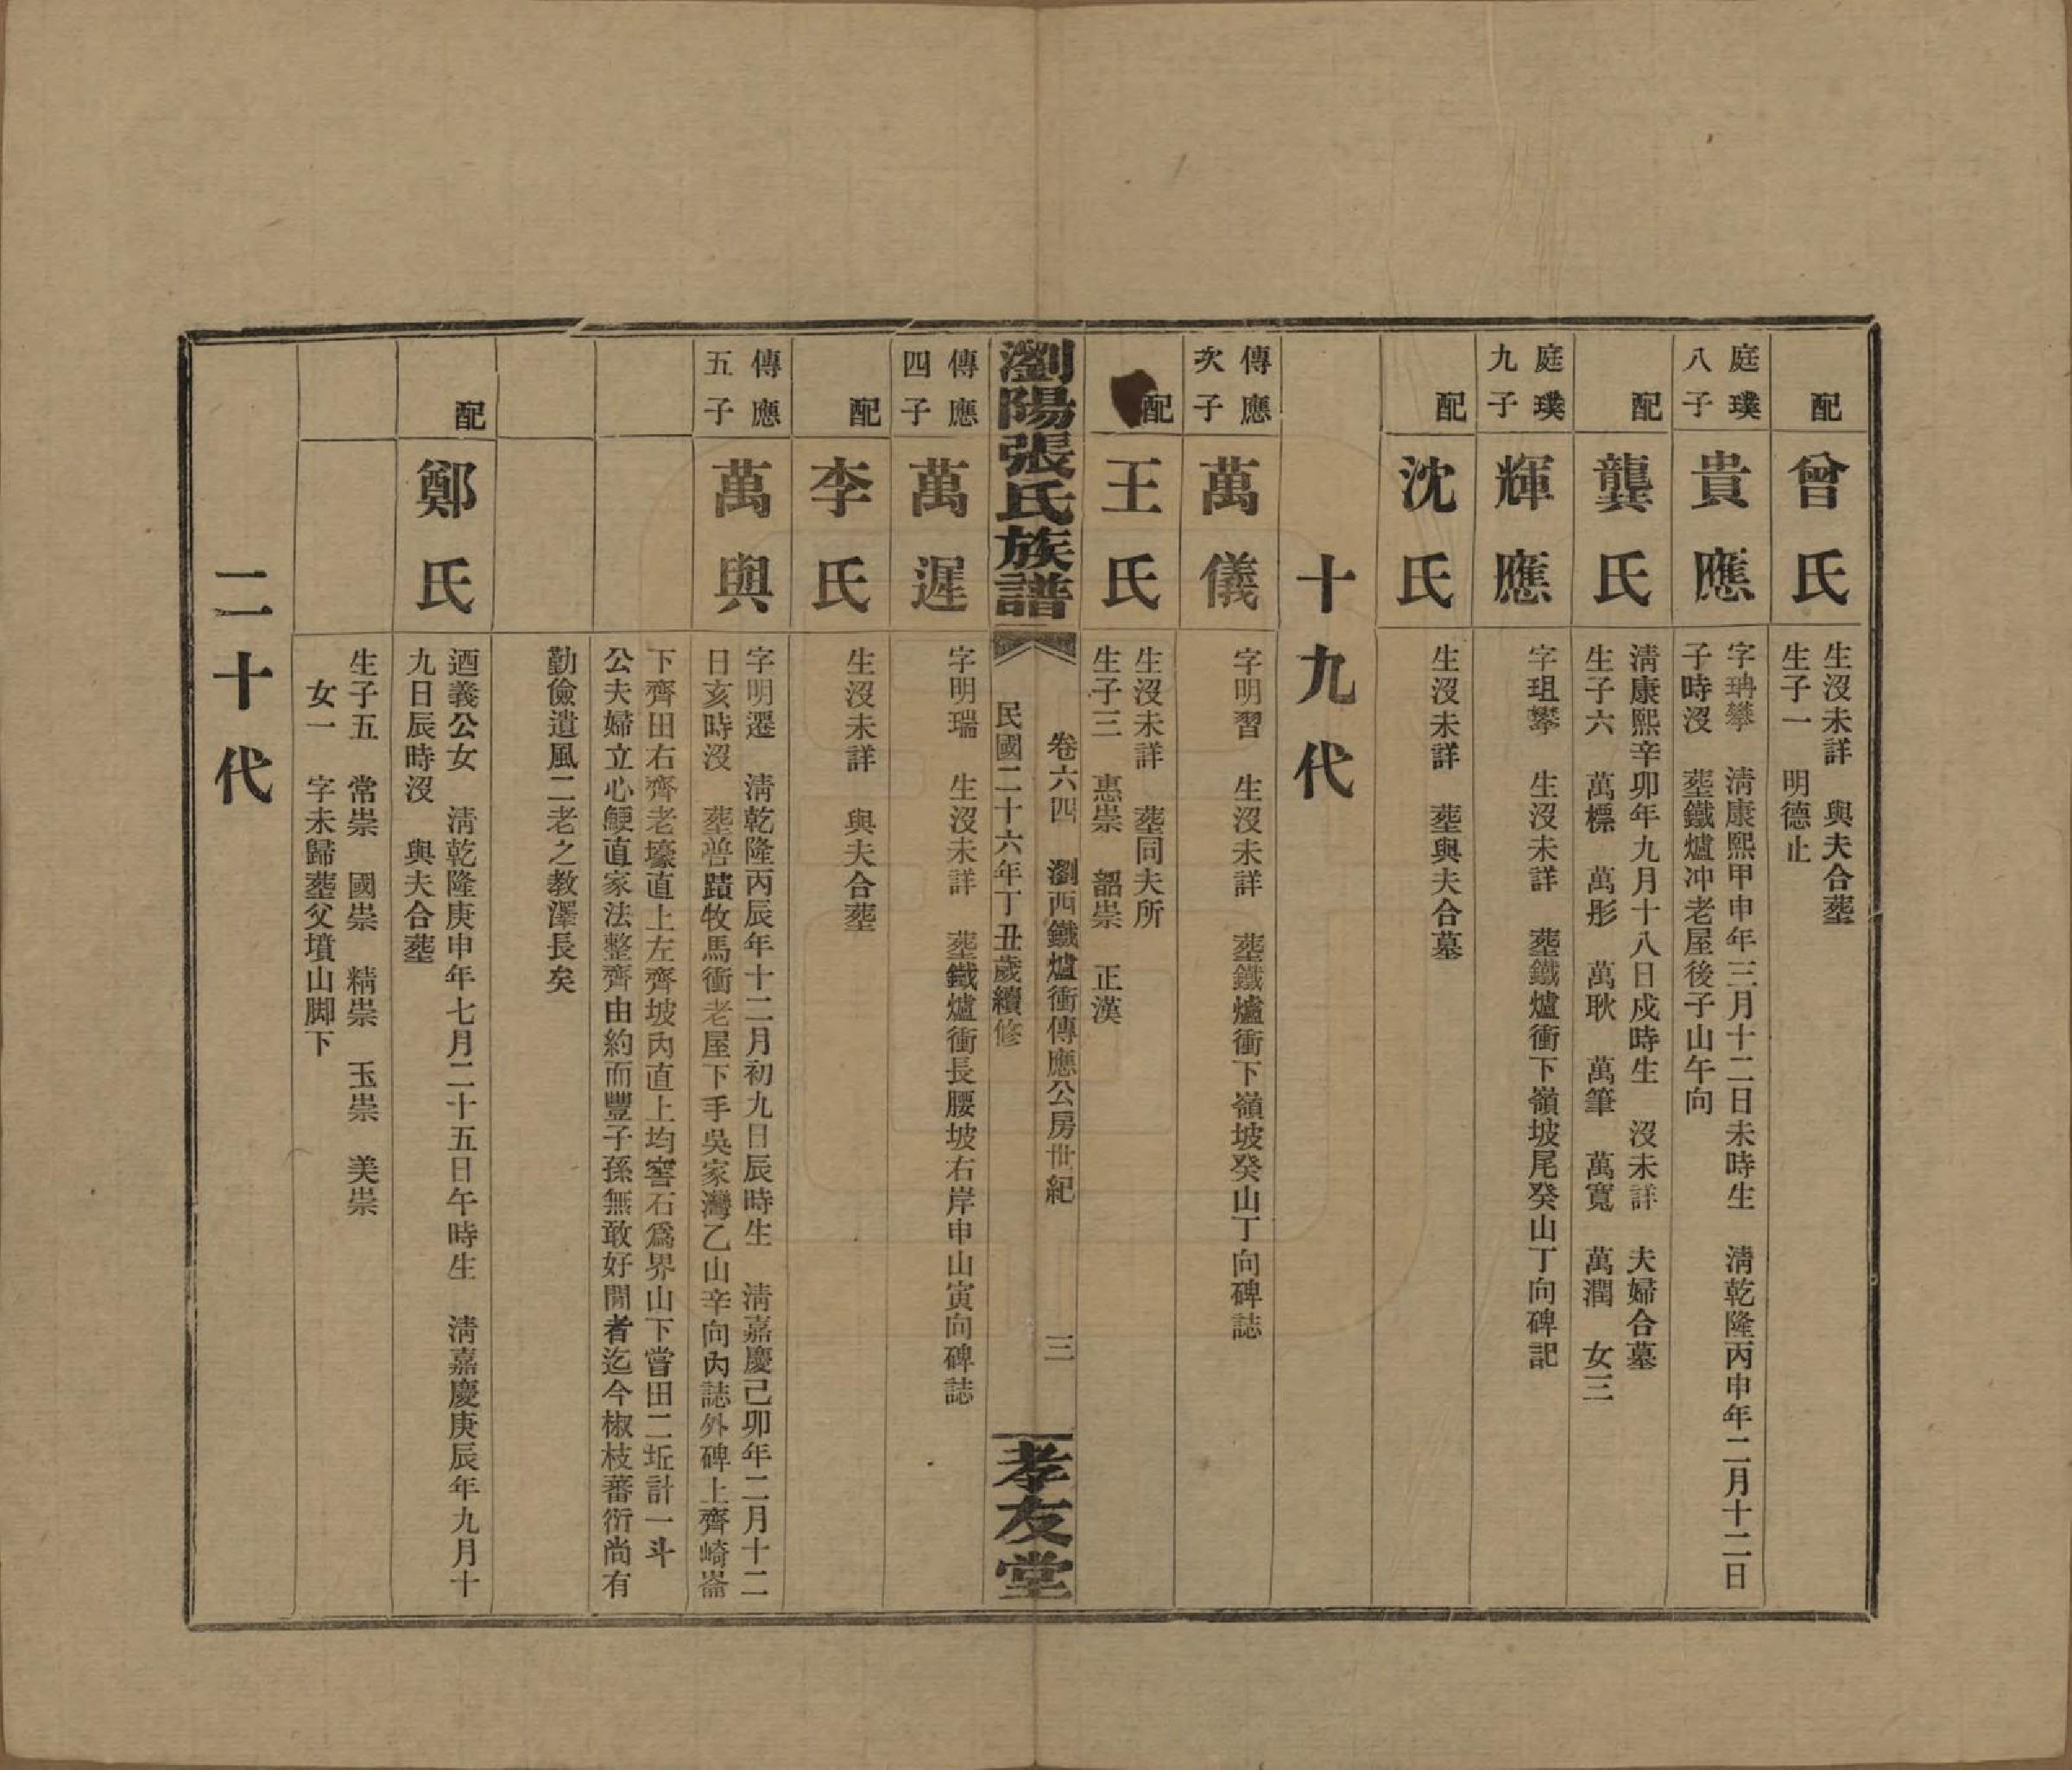 配
曾氏
生沒未詳　與夫合塟
生子一　明德止
庭璞
八子
貴應
字珃攀　淸康熙甲申年三月十二日未時生　淸乾隆丙申年二月十二日
子時沒　塟鐵爐冲老屋後子山午向
配
龔氏
淸康熙辛卯年九月十八日戍時生　沒未詳　夫婦合墓
生子六　萬標　萬彤　萬耿　萬筆　萬寬　萬潤　女三
庭璞
九子
輝應
字珇攀　生沒未詳　塟鐵爐衝下嶺坡尾癸山丁向碑記
配
沈氏
生沒未詳　塟與夫合墓
十九代
傳應
次子
萬儀
字明習　生沒未詳　塟鐵爐衝下嶺坡癸山丁向碑誌
配
王氏
生沒未詳　塟同夫所
生子三　惠崇　韶崇　正漢
瀏陽張氏族譜
卷六四　瀏西鐵爐衝傳應公房世紀　三
民國二十六年丁丑歲續修
孝友堂
傳應
四子
萬遲
字明瑞　生沒未詳　塟鐵爐衝長腰坡右岸申山寅向碑誌
配
李氏
生沒未詳　與夫合塟
傳應
五子
萬與
字明遷　淸乾隆丙辰年十二月初九日辰時生　淸嘉慶己卯年二月十二
日亥時沒　塟普蹟牧馬衝老屋下手吳家灣乙山辛向內誌外碑上齊崎崙
下齊田右齊老壕直上左齊坡內直上均窖石爲界山下當田二坵計一斗
公夫婦立心鯁直家法整齊由約而豐子孫無敢好閒者迄今椒枝蕃衍尚有
勤儉遺風二老之教澤長矣
配
鄭氏
迺義公女　淸乾隆庚申年七月二十五日午時生　淸嘉慶庚辰年九月十
九日辰時沒　與夫合塟
生子五　常崇　國崇　精崇　玉崇　美崇
女一　字未歸塟父墳山脚下
二十代